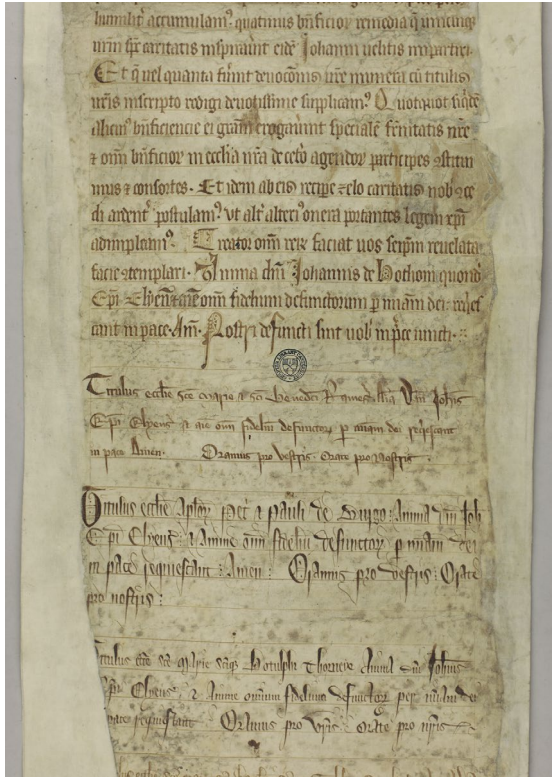 humilit accumulam⁹ quatinus bn̄ficior remedia q̄
urm sp̄c caritatis inspirauit eidē Johanni uelitis impartiri
Et q̄ uel quanta fūint deuoc̄onis ur̄e munera cū titulis
ur̄is inscripto redigi deuotissime supplicam⁹ Quotquot
alicui⁹ bn̄ficiencie ei gr̄am erogauūt speciale fr̄nitatis nr̄e
⁊ om̄ bn̄ficior in ecc̄lia nr̄a de cet̄o agendor participes ꝯstitui
mus ⁊ consortes. Et idem ab eis recipe ⁊ zelo caritatis nob ꝯce
di ardent postulam⁹ Vt alt̄ alteri⁹ onera portantes legem xp̄i
adimpleam⁹. Creator om̄ rer̄ faciat uos serp̄m reuelata
facie ꝯtemplari. Anima dn̄i Johannis de Hothom quond
Ep̄i Elyen̄ ⁊ aīe om̄ fidelium defunctorum p̄ mīam dei req̄es
cant in pace. Am̄. Nostri defuncti sint uob in p̄ce iuncti.
Titulus ecc̄lie sc̄e Marie ⁊ sc̄i Benedc̄i Rames. Aīa Dn̄i Joh̄is
Ep̄i Elyens̄ ⁊ aīe om̄ fideliū defunctor̄ p̄ mīam dei req̄escant
in pace Amen. Oramus pro vestris. Orate pro nostris.
Titulus ecc̄lie Ap̄lor̄ Petri ⁊ Pauli de Burgo. Anima Dn̄i Joh
Ep̄i Elyens̄ ⁊ Anime om̄ fideliū defunctor̄ p̄ mīam dei
in pace requiescant. Amen. Oramus pro vestris. Orate
pro nostris
titulus ecc̄e sc̄e Marie sc̄iq̄ Botulphi Thorneye Anima Dn̄i Joh̄is
Ep̄i Elyens̄ ⁊ Anime omnium fidelium defunctor̄ per mīam dei
pace requiescant Oramus pro vr̄is Orate pro nr̄is